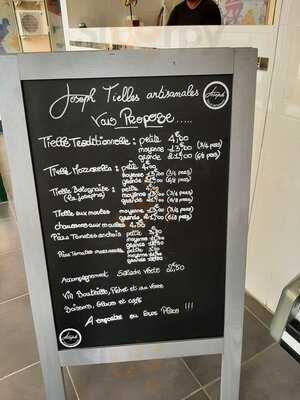 Joseph Tielles artisanales
Vous Propose .....
Joseph
Tielle Traditionnelle : petite 4€00
moyenne 13€00 (3/4 pers)
grande 21€00 (6/8 pers)
Tielle Mozzarella : petite
moyenne (3/4 pers)
grande (6/8 pers)
Tielle Bolognaise : petite
(Ste Joseph) moyenne (3/4 pers)
grande (6/8 pers)
Tielle aux moules moyenne 13€00 (3/4 pers)
grande 21€00 (6/8 pers)
chaussons aux moules 4.50
Pizza Tomates anchois petite
moyenne
grande
Pizza Tomates mozzarella petite
moyenne
grande
Accompagnement Salade verte 2€50
Vin Bouteille, Pichet et au verre
Boissons, Glaces et café
A emporter ou sur Place !!!
Joseph